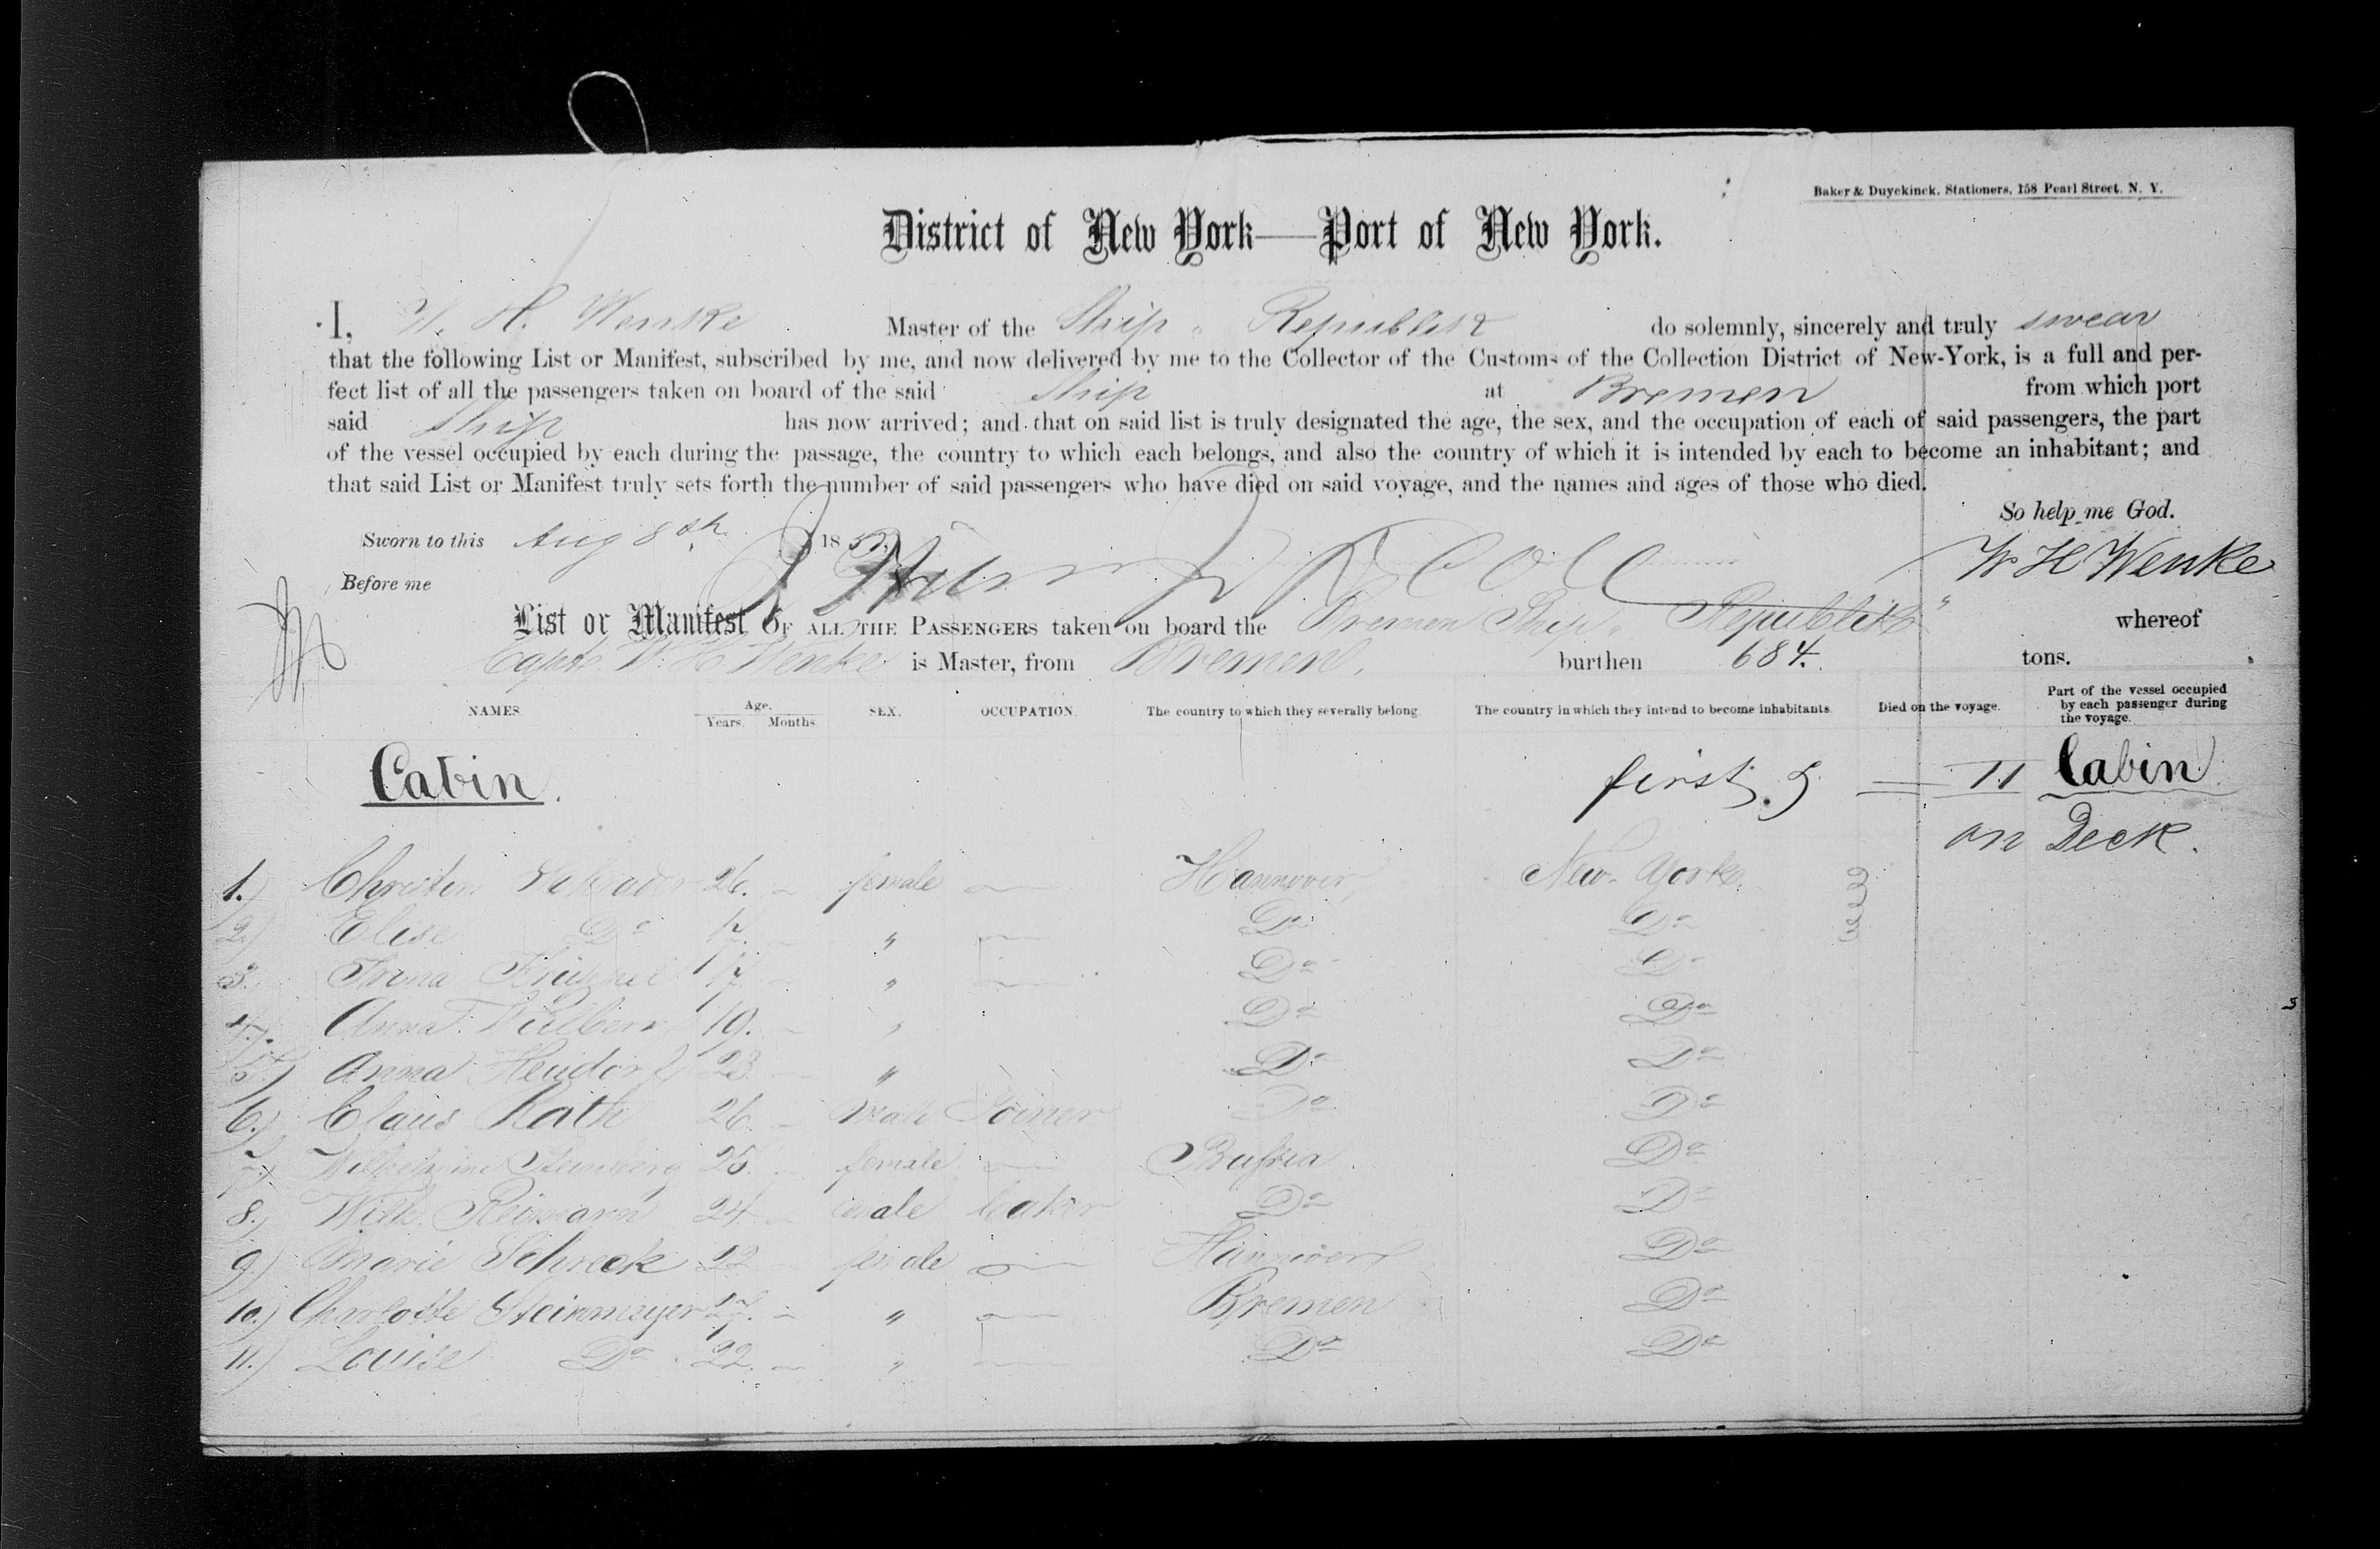 Baker & Duyckinck, Stationers, 158 Pearl Street, N. Y.
District of New York—Port of New York.
I, W. H. Wenke Master of the Ship „ Republik do solemnly, sincerely and truly swear
that the following List or Manifest, subscribed by me, and now delivered by me to the Collector of the Customs of the Collection District of New-York, is a full and per-
fect list of all the passengers taken on board of the said Ship at Bremen from which port
said Ship has now arrived; and that on said list is truly designated the age, the sex, and the occupation of each of said passengers, the part
of the vessel occupied by each during the passage, the country to which each belongs, and also the country of which it is intended by each to become an inhabitant; and
that said List or Manifest truly sets forth the number of said passengers who have died on said voyage, and the names and ages of those who died.
So help me God.
Sworn to this Aug 8th 185
W H Wenke
Before me
List or Manifest OF ALL THE PASSENGERS taken on board the Bremen Ship „ Republik" whereof
Capt. W. H. Wenke is Master, from Bremen. burthen 684. tons.
NAMES. Age. Years. Months. SEX. OCCUPATION. The country to which they severally belong. The country in which they intend to become inhabitants. Died on the voyage. Part of the vessel occupied by each passenger during the voyage.
Cabin. first 5 11 Cabin
on Deck.
1.) 26. — female — Hannover, New-York.
2.) Elise Do 17. — " — Do Do
3.) 17. — " — Do Do
4.) Anna 19. — " Do Do
5.) Anna Heudorf 23. — " Do Do
6.) Claus Rath 26. — male Joiner Do Do
7.) Steinberg 25. — female — Prussia Do
8.) Wilh. Reimann 24. — male baker Do Do
9.) Marie Schreck 22 — female — Hannover Do
10.) Charlotte Steinmeyer 27. — " — Bremen Do
11.) Louise Do 22. — " — Do Do